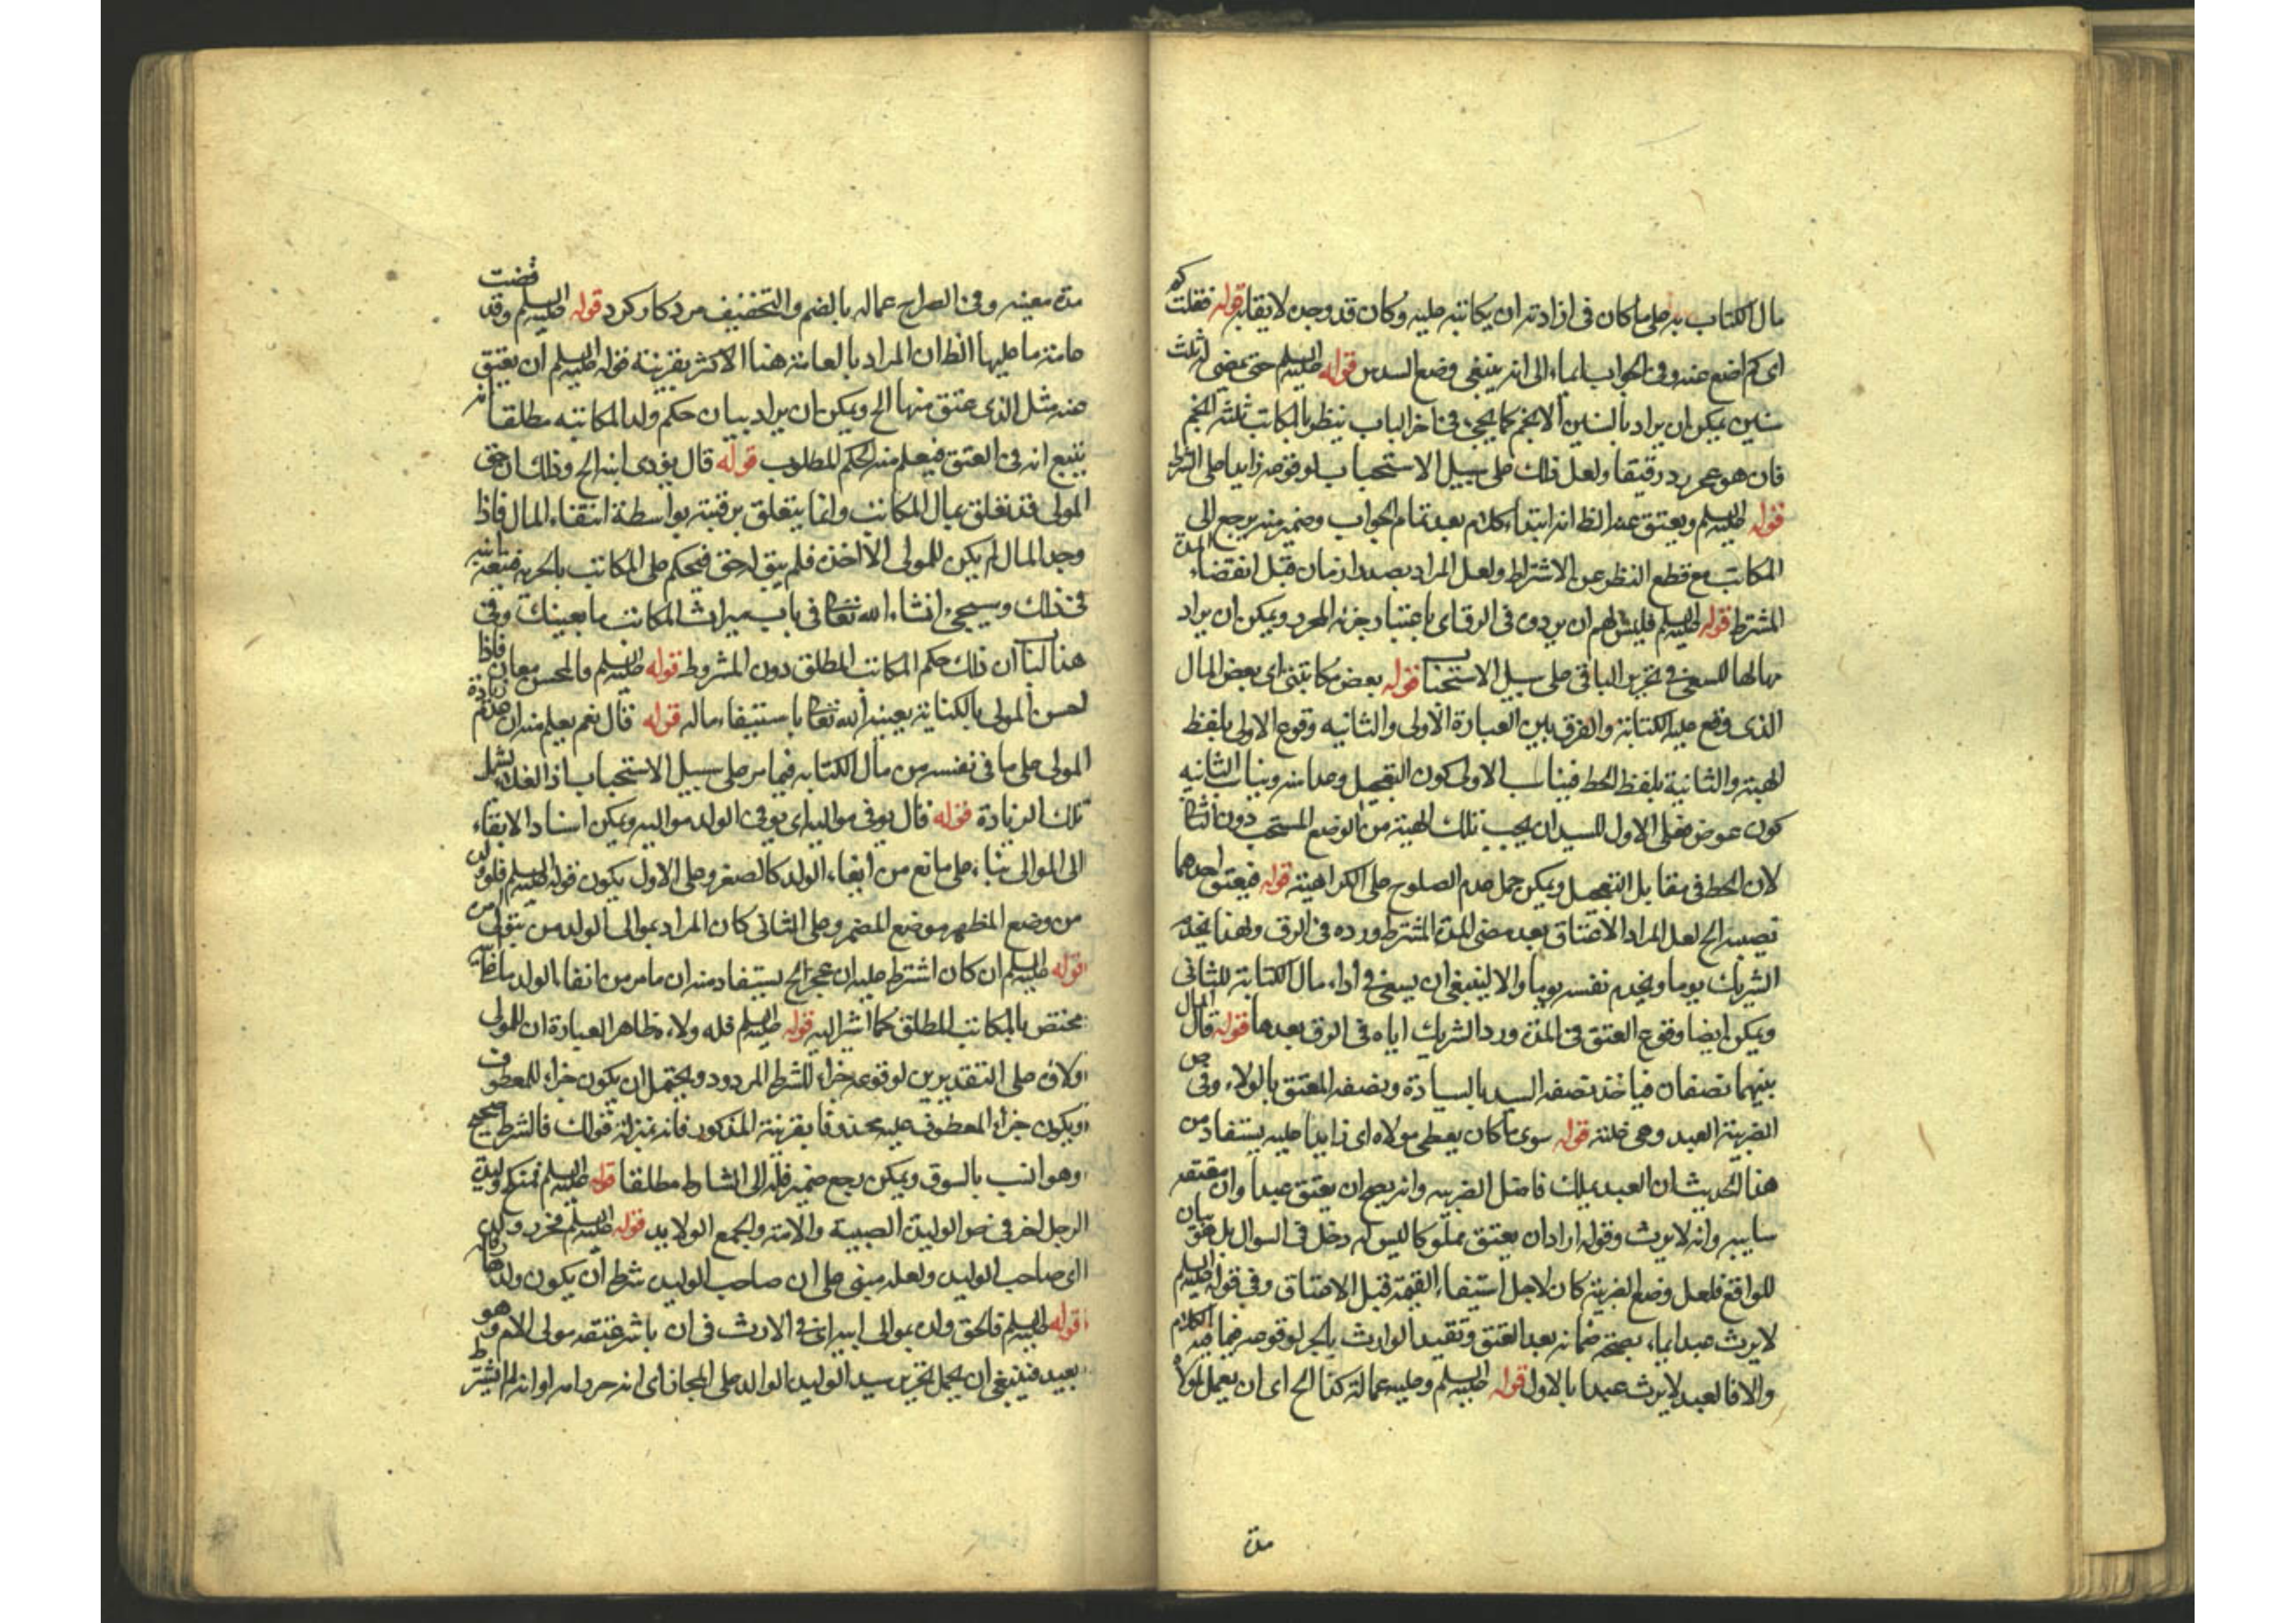 مال الكتابة على ما كان فى ارادته ان يكاتبه عليه وكان قد وجده لا يقابر قوله فقلت كم
اى كم اضع عنه وفى الجواب ايماء الى انه ينبغى وضع السدس قوله عليه السلم حتى يمضى له ثلث
سنين يمكن ان يراد بالسنين الانجم كما يجئ فى اخر الباب ينظر بالمكاتب ثلثة انجم
فان هو عجز رد رقيقا ولعل ذلك على سبيل الاستحباب لوقوعه زايدا على الشرط
قوله عليه السلم ويعتق عنه الظ انه ابتداء كلام بعد تمام الجواب وضمير منه يرجع الى
المكاتب مع قطع النظر عن الاشتراط ولعل المراد بصدد ازمان قبل انقضاء المدة
المشترط قوله عليه السلم فليس لهم ان يردوه فى الرق اى باعتبار جزئه المحرر ويمكن ان يراد
بها لها للسعى فى تحرير الباقى على سبيل الاستحباب قوله بعض مكاتبتى اى بعض المال
الذى وقع عليه الكتابة والفرق بين العبارة الاولى والثانيه وقوع الاولى بلفظ
الهبة والثانية بلفظ الحط فيناسب الاولى كون التعجيل وعدا منه ويناسب الثانيه
كون عوض فعلى الاول للسيد ان يجب تلك الهبة من الوضع المستحب دون الثانى
لان الحط فى مقابل التعجيل ويمكن حمل عدم الصلوح على الكراهية قوله فيعتق احدهما
نصيبه الخ لعل المراد الاعتاق بعد مضى المدة المشترط ورده فى الرق ولهذا يخدم
الشريك يوما ويخدم نفسه يوما والا لينبغى ان يسعى فى أداء مال الكتابة للثانى
ويمكن ايضا وقوع العتق فى المدة ورد الشريك اياه فى الرق بعدها قوله قال المال
بينهما نصفان فياخذ نصفه السيد بالسيادة ونصفه المعتق بالولاء وفى ص
الضريبة العبد وهى غلته قوله سوى ما كان يعطى مولاه اى زايدا عليه يستفاد من
هذا الحديث ان العبد يملك فاضل الضريبه وانه يصح ان يعتق عبدا وان معتقه
سايبه وانه لا يرث وقوله اراد ان يعتق مملوكا ليس له دخل فى السوال بل هو بيان
للواقع فلعل وضع الضريبة كان لاجل استيفاء القيمة قبل الاعتاق وفى قوله عليه السلم
لا يرث عبد ايماء بصحة ضمانه بعد العتق وتقييد الوارث بالحر لوقوعه فيما فيه الكلام
والا فالعبد لا يرث عبدا بالاول قوله عليه السلم وعليه عمالة كذا الخ اى ان يعمل لمولاه
مدة
مدة معينه وفى الصراح عماله بالضم والتخفيف مزد كار كرد قوله عليه السلم وقد قضت
عامة ما عليها الظ ان المراد بالعامة هنا الاكثر بقرينة قوله عليه السلم ان يعتق
منه مثل الذى عتق منها الخ ويمكن ان يراد بيان حكم ولد المكاتبه مطلقا انه
يتبع امه فى العتق فيعلم منه الحكم المطلوب قوله قال يؤدى ابنه الخ وذلك ان حق
المولى قد تعلق بمال المكاتب وانما يتعلق برقبته بواسطة انتفاء المال فاذا
وجد المال لم يكن للمولى الا اخذه فلم يبق له حق فيحكم على المكاتب بالحرية فيتبعه ابنه
فى ذلك وسيجئ انشاء الله تعالى فى باب ميراث المكاتب ما يعينك وفى
هنالك ان ذلك حكم المكاتب المطلق دون المشروط قوله عليه السلم والمحسن معان فاذا
احسن المولى بالكتابة يعينه الله تعالى باستيفاء ماله قوله قال نعم يعلم منه ان عدم زيادة
المولى على ما فى نفسه من مال الكتابه فيما مر على سبيل الاستحباب اذ الفداء يشمل
تلك الزيادة قوله قال يوفى مواليه اى يوفى الولد مواليه ويمكن اسناد الايفاء
الى الموالى بناء على مانع من ايفاء الولد كالصغر وعلى الاول يكون قوله عليه السلم فلولده
من وضع المظهر موضع المضمر وعلى الثانى كان المراد بموالى الولد من يتولى من
قوله عليه السلم ان كان اشترط عليه ان عجز الخ يستفاد منه ان ما مر من ايفاء الولد
مختص بالمكاتب المطلق كما اشرنا اليه قوله عليه السلم فله ولاءه ظاهر العبارة ان للمولى
ولاؤه على التقديرين لوقوعه جزاء للشرط المردود ويحتمل ان يكون جزاء للمعطوف
ويكون جزاء المعطوف عليه محذوفا بقرينة المذكور فانه بمنزلة قولك فالشرط صحيح
وهو انسب بالسوق ويمكن رجع ضمير فله الى الشارط مطلقا قوله عليه السلم فنكح وليدة
الرجل اخر فى ص الوليدة الصبية والامة والجمع الولايد قوله عليه السلم فحرر ولده
اى صاحب الوليدة ولعله مبنى على ان صاحب الوليدة شرط ان يكون ولدها
قوله عليه السلم فالحق وان بموالى ابيه اى فى الارث فى ان باشر عتقه مولى الام وهو
بعيد فينبغى ان يحمل تحرير سيد الوليدة الولد على المجاز اى انه حرر امه او انه لم يشترط